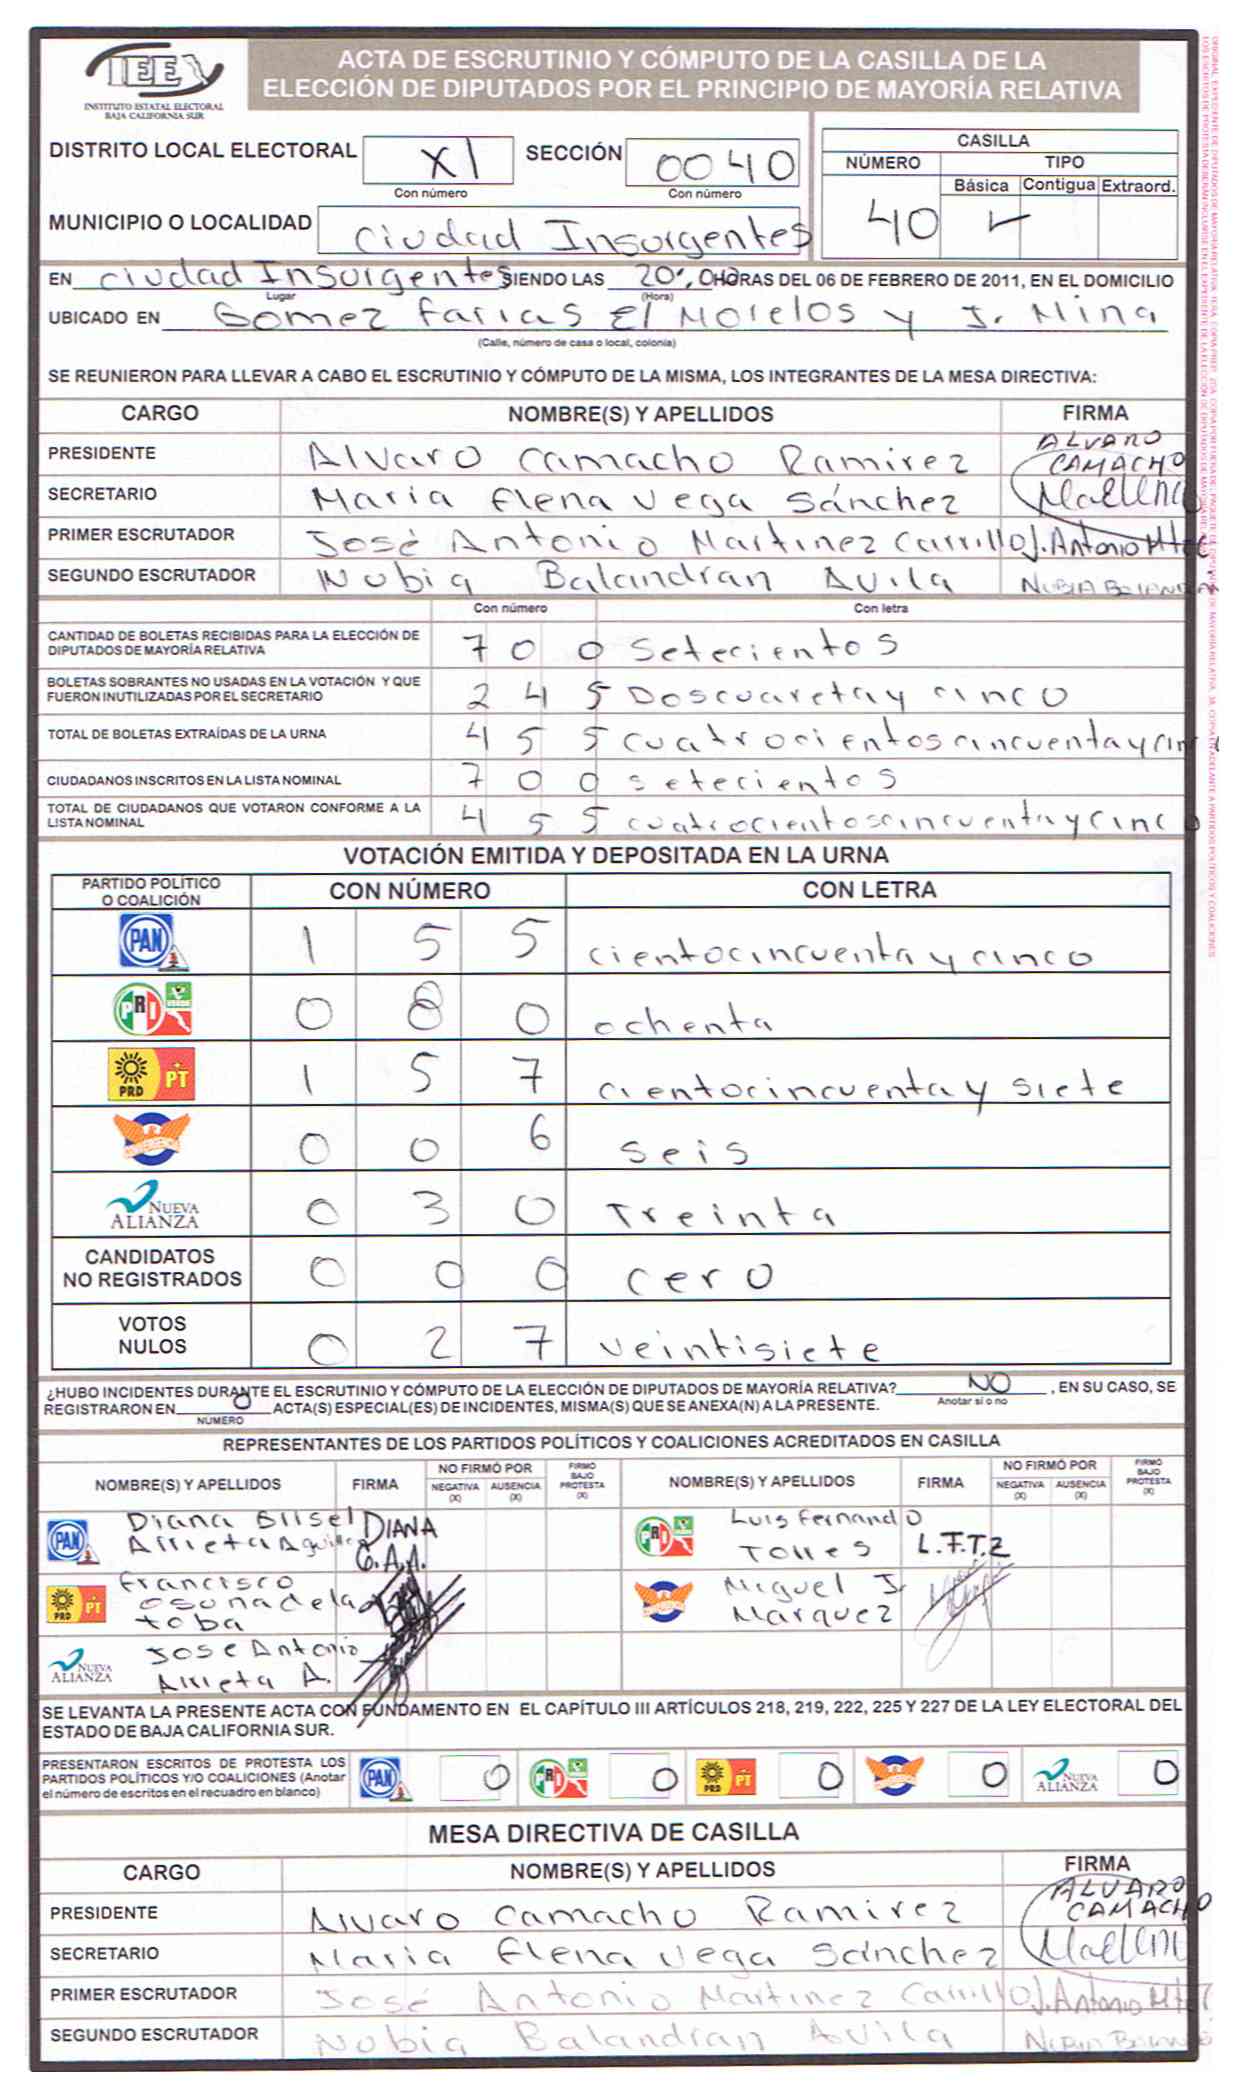 IEE
INSTITUTO ESTATAL ELECTORAL
BAJA CALIFORNIA SUR
ACTA DE ESCRUTINIO Y CÓMPUTO DE LA CASILLA DE LA
ELECCIÓN DE DIPUTADOS POR EL PRINCIPIO DE MAYORÍA RELATIVA
DISTRITO LOCAL ELECTORAL XI SECCIÓN 0040
Con número Con número
CASILLA
NÚMERO TIPO
Básica Contigua Extraord.
40 ✓
MUNICIPIO O LOCALIDAD Ciudad Insurgentes
EN Ciudad Insurgentes SIENDO LAS 20:00 HORAS DEL 06 DE FEBRERO DE 2011, EN EL DOMICILIO
Lugar (Hora)
UBICADO EN Gomez Farias E/ Morelos y J. Mina
(Calle, número de casa o local, colonia)
SE REUNIERON PARA LLEVAR A CABO EL ESCRUTINIO Y CÓMPUTO DE LA MISMA, LOS INTEGRANTES DE LA MESA DIRECTIVA:
CARGO NOMBRE(S) Y APELLIDOS FIRMA
PRESIDENTE Alvaro Camacho Ramirez ALVARO CAMACHO
SECRETARIO Maria Elena Vega Sánchez
PRIMER ESCRUTADOR José Antonio Martinez Carrillo J. Antonio
SEGUNDO ESCRUTADOR Nubia Balandran Avila NUBIA
Con número Con letra
CANTIDAD DE BOLETAS RECIBIDAS PARA LA ELECCIÓN DE
DIPUTADOS DE MAYORÍA RELATIVA 7 0 0 Setecientos
BOLETAS SOBRANTES NO USADAS EN LA VOTACIÓN Y QUE
FUERON INUTILIZADAS POR EL SECRETARIO 2 4 5 Doscuaretay cinco
TOTAL DE BOLETAS EXTRAÍDAS DE LA URNA 4 5 5 cuatrocientoscincuentaycinc
CIUDADANOS INSCRITOS EN LA LISTA NOMINAL 7 0 0 setecientos
TOTAL DE CIUDADANOS QUE VOTARON CONFORME A LA
LISTA NOMINAL 4 5 5 cuatrocientoscincuentaycinco
VOTACIÓN EMITIDA Y DEPOSITADA EN LA URNA
PARTIDO POLÍTICO
O COALICIÓN CON NÚMERO CON LETRA
PAN 1 5 5 cientocincuenta y cinco
PRI VERDE 0 8 0 ochenta
PRD PT 1 5 7 cientocincuenta y siete
CONVERGENCIA 0 0 6 seis
NUEVA ALIANZA 0 3 0 Treinta
CANDIDATOS
NO REGISTRADOS 0 0 0 cero
VOTOS
NULOS 0 2 7 veintisiete
¿HUBO INCIDENTES DURANTE EL ESCRUTINIO Y CÓMPUTO DE LA ELECCIÓN DE DIPUTADOS DE MAYORÍA RELATIVA? NO , EN SU CASO, SE
REGISTRARON EN 0 ACTA(S) ESPECIAL(ES) DE INCIDENTES, MISMA(S) QUE SE ANEXA(N) A LA PRESENTE. Anotar sí o no
NÚMERO
REPRESENTANTES DE LOS PARTIDOS POLÍTICOS Y COALICIONES ACREDITADOS EN CASILLA
NOMBRE(S) Y APELLIDOS FIRMA NO FIRMÓ POR NEGATIVA (X) AUSENCIA (X) FIRMÓ BAJO PROTESTA (X) NOMBRE(S) Y APELLIDOS FIRMA NO FIRMÓ POR NEGATIVA (X) AUSENCIA (X) FIRMÓ BAJO PROTESTA (X)
PAN Diana Glisel Arrieta Aguilar DIANA G.A.A. PRI Luis Fernando Torres L.F.T.Z
PRD PT Francisco osuna de la toba CONVERGENCIA Miguel J. Marquez
NUEVA ALIANZA Jose Antonio Arrieta A.
SE LEVANTA LA PRESENTE ACTA CON FUNDAMENTO EN EL CAPÍTULO III ARTÍCULOS 218, 219, 222, 225 Y 227 DE LA LEY ELECTORAL DEL
ESTADO DE BAJA CALIFORNIA SUR.
PRESENTARON ESCRITOS DE PROTESTA LOS
PARTIDOS POLÍTICOS Y/O COALICIONES (Anotar
el número de escritos en el recuadro en blanco) PAN 0 PRI 0 PRD PT 0 CONVERGENCIA 0 NUEVA ALIANZA 0
MESA DIRECTIVA DE CASILLA
CARGO NOMBRE(S) Y APELLIDOS FIRMA
PRESIDENTE Alvaro Camacho Ramirez ALVARO CAMACHO
SECRETARIO Maria Elena Vega Sánchez
PRIMER ESCRUTADOR José Antonio Martinez Carrillo J. Antonio
SEGUNDO ESCRUTADOR Nubia Balandran Avila NUBIA